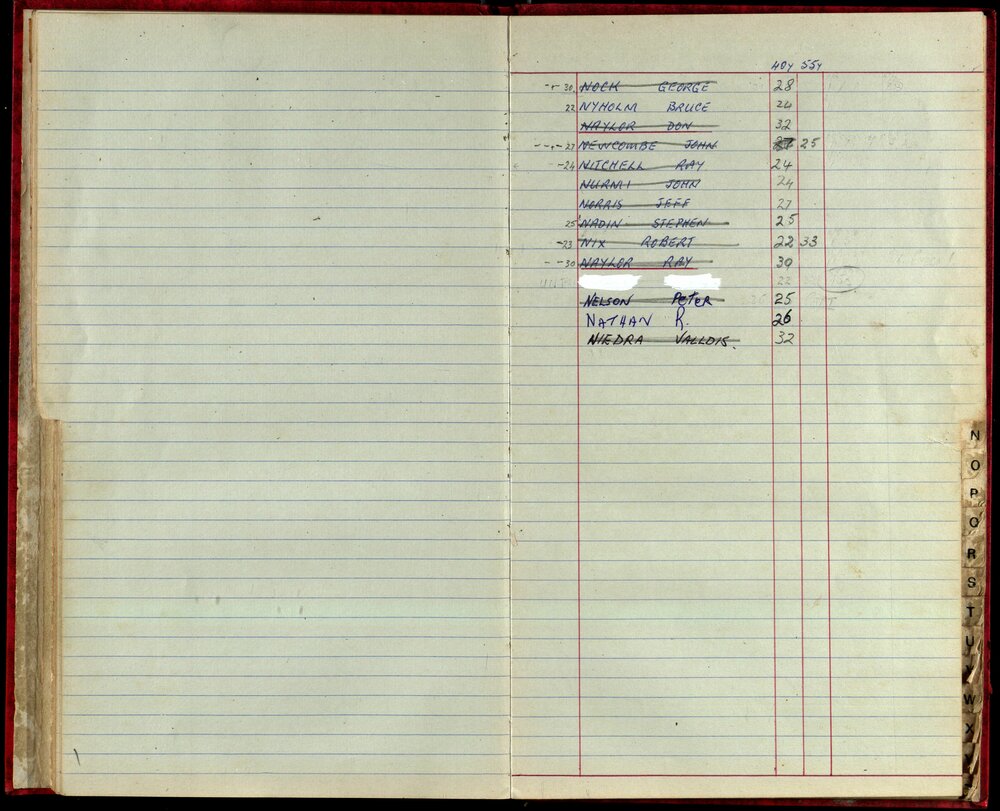 40y 55y
30 NOCK GEORGE 28
22 NYHOLM BRUCE 24
NAYLOR DON 32
27 NEWCOMBE JOHN 25
24 NITCHELL RAY 24
NURMI JOHN 24
NORRIS JEFF 27
25 NADIN STEPHEN 25
23 NIX ROBERT 22 33
30 NAYLOR RAY 30
22
NELSON PETER 25
NATHAN R. 26
NIEDRA VALLDIS. 32
N
O
P
Q
R
S
T
U
W
X